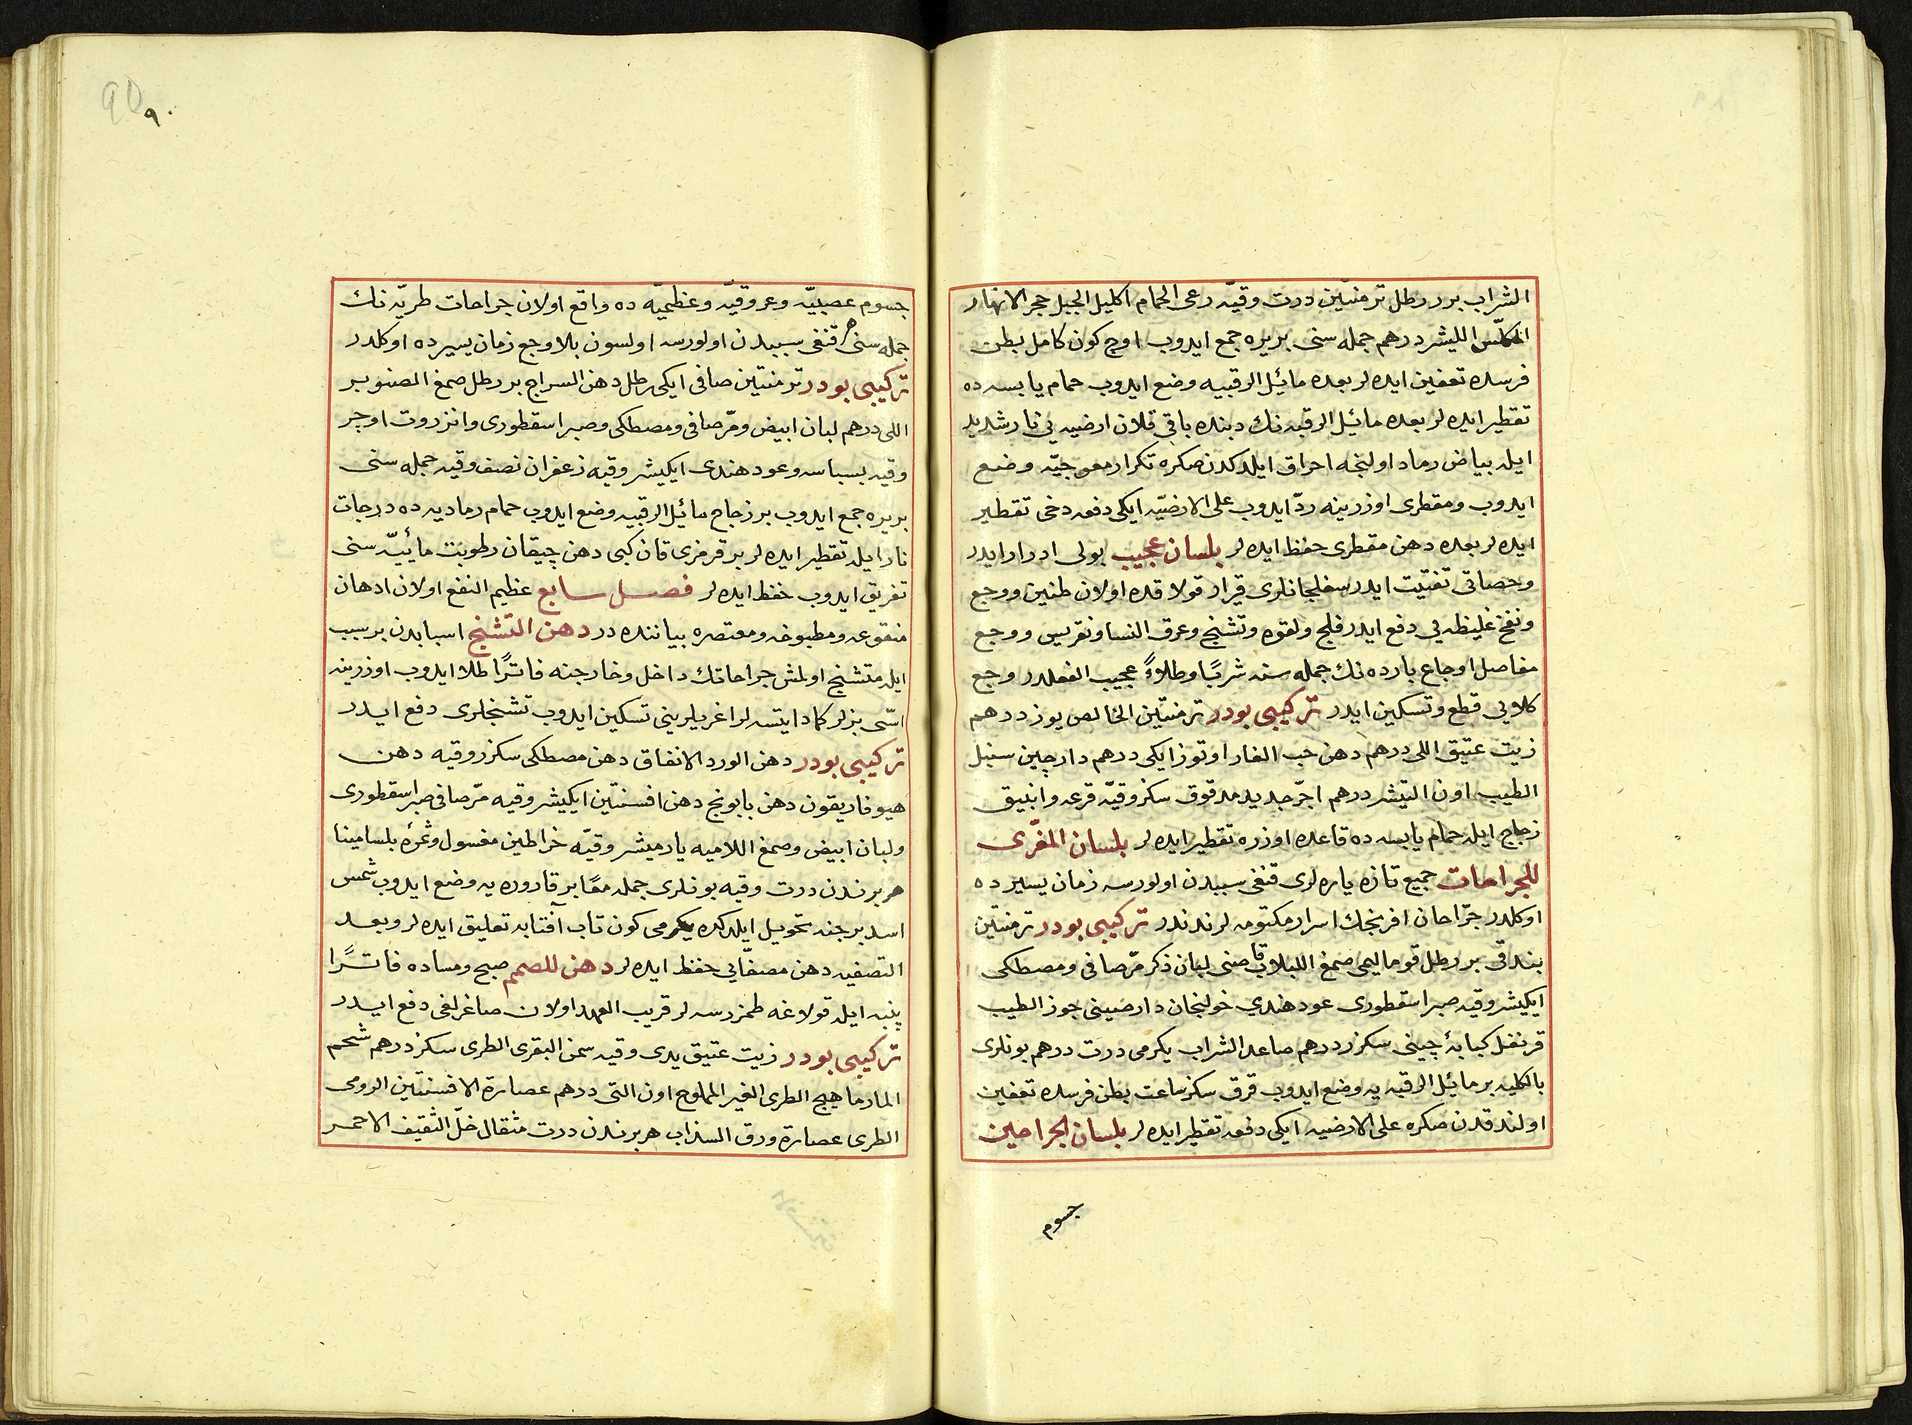 الشراب برر رطل ترمنتین درت وقیّه رعی الحمام اکلیل الجبل حجر الانهار
المکلّس اللیشر درهم جمله سنی بریره جمع ایدوب اوچ کون کامل بطن
فرسده تعفین ایده لر بعده مائیل الرقبیه وضع ایدوب حمام یابسه ده
تقطیر ایده لر بعده مائیل الرقبه نك دبنده باقی قلان ارضیه یی نار شدید
ایله بیاض رماد اولنجه احراق ایلدکدن صکره تکرار معوجیّه وضع
ایدوب ومقطری اوزرینه ردّ ایدوب علی الارضیّه ایکی دفعه دخی تقطیر
ایده لر بعده دهن مقطری حفظ ایده لر بلسان عجیب بولی ادرار ایدر
وحصاتی تفتیت ایدر سفلجانلری قیرار قولاقده اولان طنین ووجع
ونفخ غلیظه یی دفع ایدر فلج ولقوه وتشنج وعرق النسا ونقریس ووجع
مفاصل اوجاع بارده نك جمله سنه شربًا وطلاءً عجیب الفعلدر وجع
کلایی قطع وتسکین ایدر ترکیبی بودر ترمنتین الخالص یوز درهم
زیت عتیق اللی درهم دهن حب الغار اوتوز ایکی درهم دارچین سنبل
الطیب اون التیشر درهم اجرّ جدید مدقوق سکز وقیّه قرعه وانبیق
زجاج ایله حمام یابسه ده قاعده اوزره تقطیر ایده لر بلسان المغرّی
للجراحات جمیع تازه یاره لری قنغی سببدن اولورسه زمان یسیر ده
اوکلدر جرّاحان افرنجك اسرار مکتومه لرندندر ترکیبی بودر ترمنتین
بندقی بر رطل قومالیمی صمغ اللبلاب قاصنی لبان ذکر مرّ صافی ومصطکی
ایکیشر وقیه صبر اسقطوری عود هندی خولنجان دارصینی جوز الطیب
قرنفل کبابۀ چینی سکزر درهم صاعد الشراب یکرمی درت درهم بونلری
بالکلیه بر مائیل الرقبه یه وضع ایدوب قرق سکز ساعت بطن فرسده تعفین
اولندقدن صکره علی الارضیه ایکی دفعه تقطیر ایده لر بلسان الجراحین
جسوم
۹۰
90
جسوم عصبیّه وعروقیّه وعظمیّه ده واقع اولان جراحات طریّه نك
جمله سنی هر قنغی سببدن اولورسه اولسون بلا وجع زمان یسیرده اوکلدر
ترکیبی بودر ترمنتین صافی ایکی رطل دهن السراج بر رطل صمغ الصنوبر
اللی درهم لبان ابیض ومرّ صافی ومصطکی وصبر اسقطوری وانزروت اوچر
وقیه بسباسه وعود هندی ایکیشر وقیه زعفران نصف وقیه جمله سنی
بریره جمع ایدوب بر زجاج مائیل الرقبیه وضع ایدوب حمام رمادیه ده درجات
نار ایله تقطیر ایده لر بر قرمزی قان کبی دهن چیقان رطوبت مائیّه سنی
تفریق ایدوب حفظ ایده لر فصل سابع عظیم النفع اولان ادهان
منقوعه ومطبوخه ومعتصره بیاننده در دهن التشنج اسبابدن بر سبب
ایله متشنج اولمش جراحاتك داخل وخارجنه فاترًا طلا ایدوب اوزرینه
اسّی بزلر کماد ایتسه لر اغریلرینی تسکین ایدوب تشنجلری دفع ایدر
ترکیبی بودر دهن الورد الانفاق دهن مصطکی سکزر وقیه دهن
هیوفاریقون دهن بابونج دهن افسنتین ایکیشر وقیه مرّ صافی صبر اسقطوری
ولبان ابیض وصمغ اللامیه یارمیشر وقیّه خراطین مغسول وثمرۀ بلسامینا
هر برندن درت وقیه بونلری جمله معًا بر قاروره یه وضع ایدوب شمس
اسد برجنه تحویل ایلدکده یکرمی کون تاب آفتابه تعلیق ایده لر وبعد
التصفیه دهن مصفّایی حفظ ایده لر دهن للصمم صبح ومساده فاترًا
پنبه ایله قولاغه طمزرسه لر قریب العهد اولان صاغرلغی دفع ایدر
ترکیبی بودر زیت عتیق یدی وقیه سمن البقری الطری سکز درهم شحم
المارماهیج الطری الغیر المملوح اون التی درهم عصارة الافسنتین الرومی
الطری عصارة ورق السذاب هر برندن درت مثقال خلّ الثقیف الاحمر